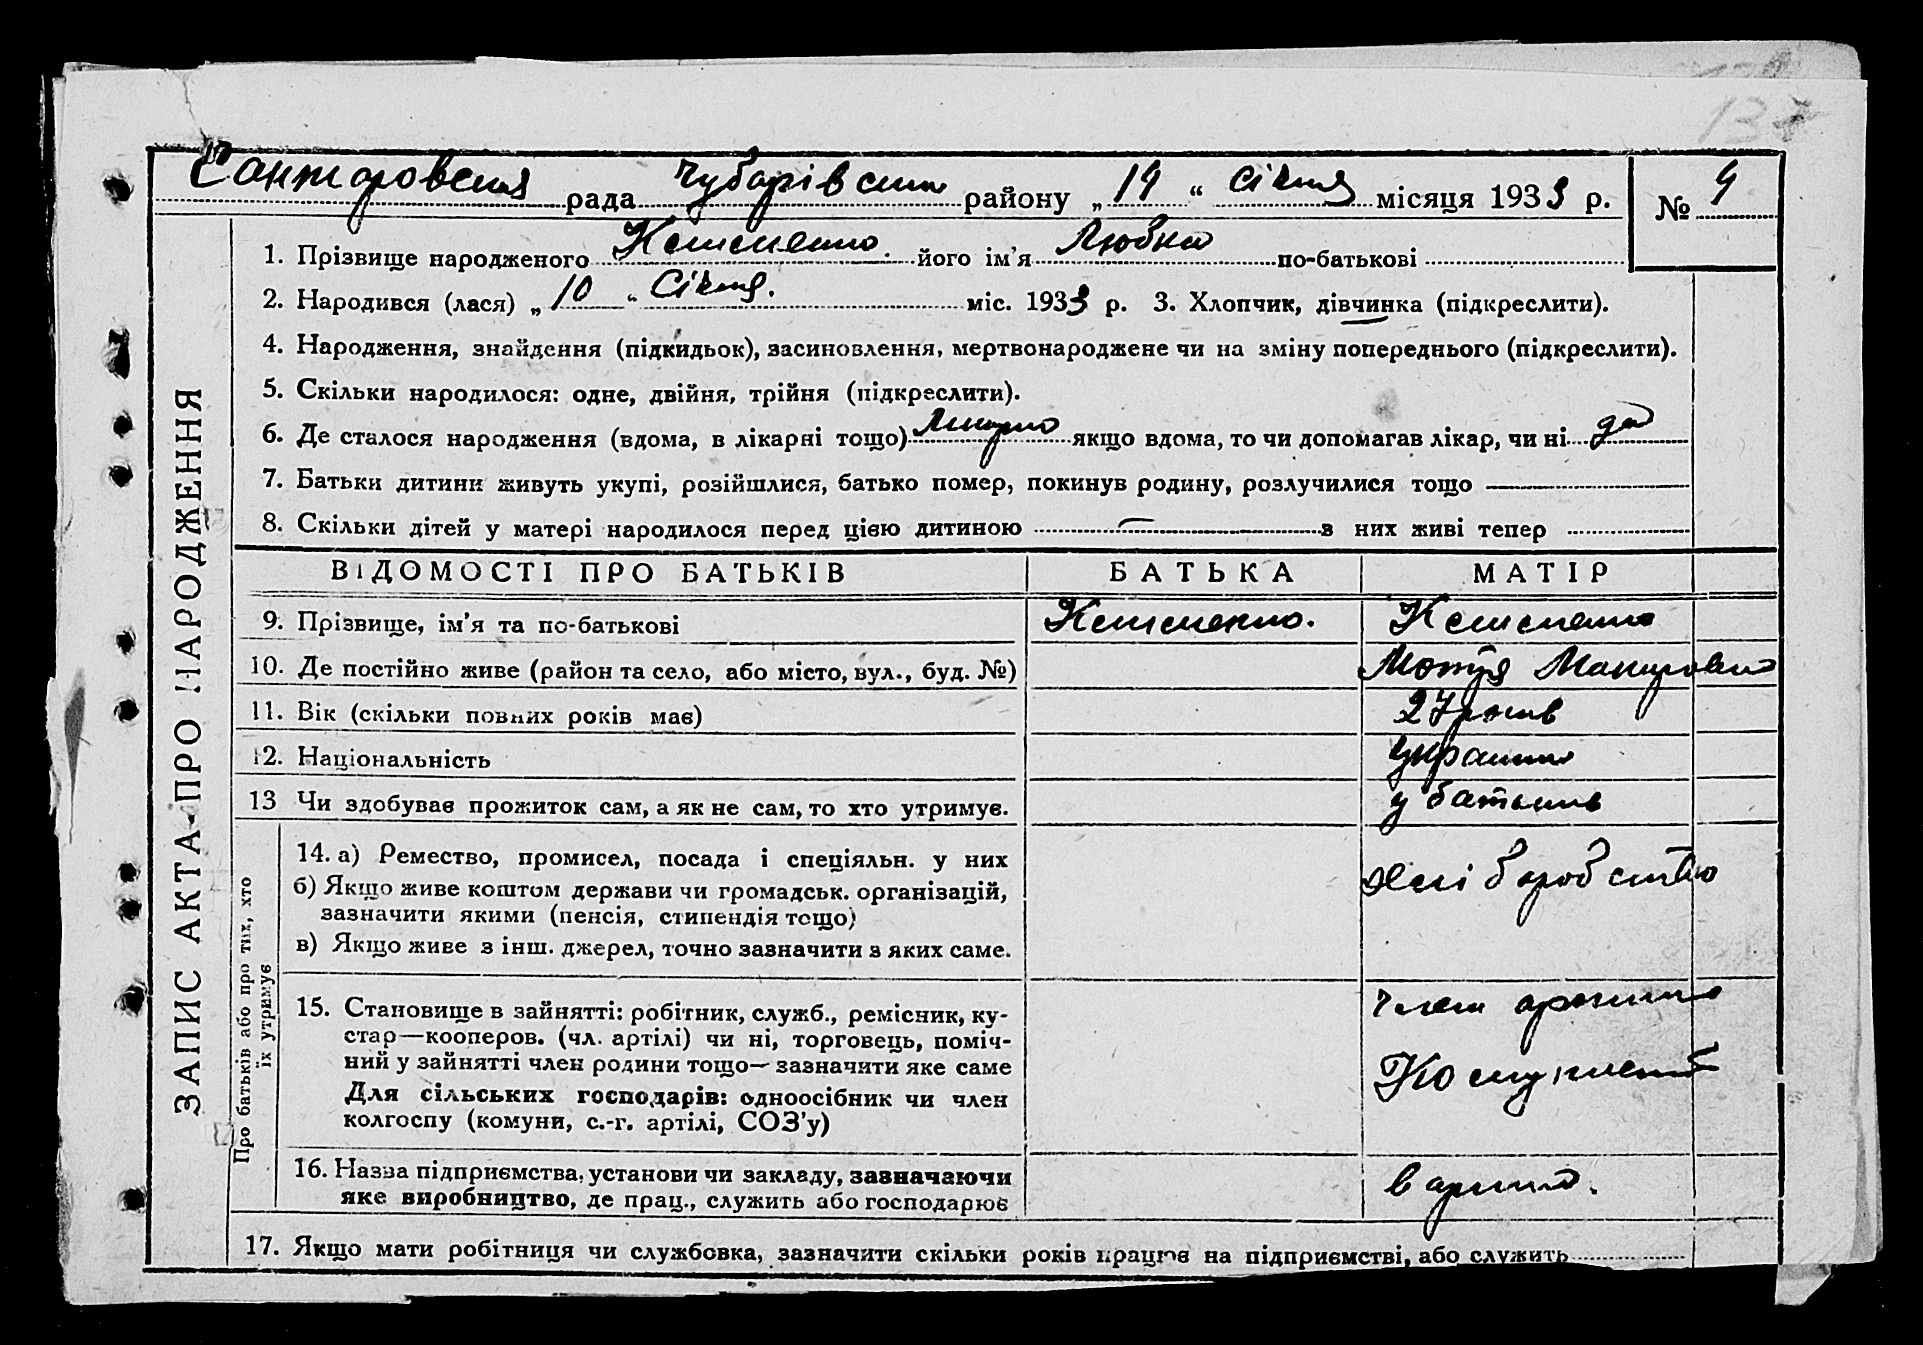 137
рада Чубарівськ району „ 19 “ січня місяця 1933 р. № 9
1. Прізвище народженого його ім’я Любка по-батькові
2. Народився (лася) „ 10 “ Січня. міс. 1933 р. 3. Хлопчик, дівчинка (підкреслити).
4. Народження, знайдення (підкидьок), засиновлення, мертвонароджене чи на зміну попереднього (підкреслити).
5. Скільки народилося: одне, двійня, трійня (підкреслити).
6. Де сталося народження (вдома, в лікарні тощо) якщо вдома, то чи допомагав лікар, чи ні да
7. Батьки дитини живуть укупі, розійшлися, батько помер, покинув родину, розлучилися тощо
8. Скільки дітей у матері народилося перед цією дитиною — з них живі тепер
ВІДОМОСТІ ПРО БАТЬКІВ БАТЬКА МАТІР
9. Прізвище, ім’я та по-батькові
10. Де постійно живе (район та село, або місто, вул., буд. №) Мотря
11. Вік (скільки повних років має) 27 років
12. Національність
13 Чи здобуває прожиток сам, а як не сам, то хто утримує. у батьків
14. а) Ремество, промисел, посада і спеціяльн. у них
б) Якщо живе коштом держави чи громадськ. організацій,
зазначити якими (пенсія, стипендія тощо)
в) Якщо живе з інш. джерел, точно зазначити з яких саме.
15. Становище в зайнятті: робітник, служб., ремісник, ку-
стар—кооперов. (чл. артілі) чи ні, торговець, поміч-
ний у зайнятті член родини тощо— зазначити яке саме
Для сільських господарів: одноосібник чи член
колгоспу (комуни, с.-г. артілі, СОЗ’у)
член
16. Назва підприємства, установи чи закладу, зазначаючи
яке виробництво, де прац., служить або господарює
в артілі.
17. Якщо мати робітниця чи службовка, зазначити скільки років працює на підприємстві, або служить
ЗАПИС АКТА ПРО НАРОДЖЕННЯ
Про батьків або про тих, хто
їх утримує